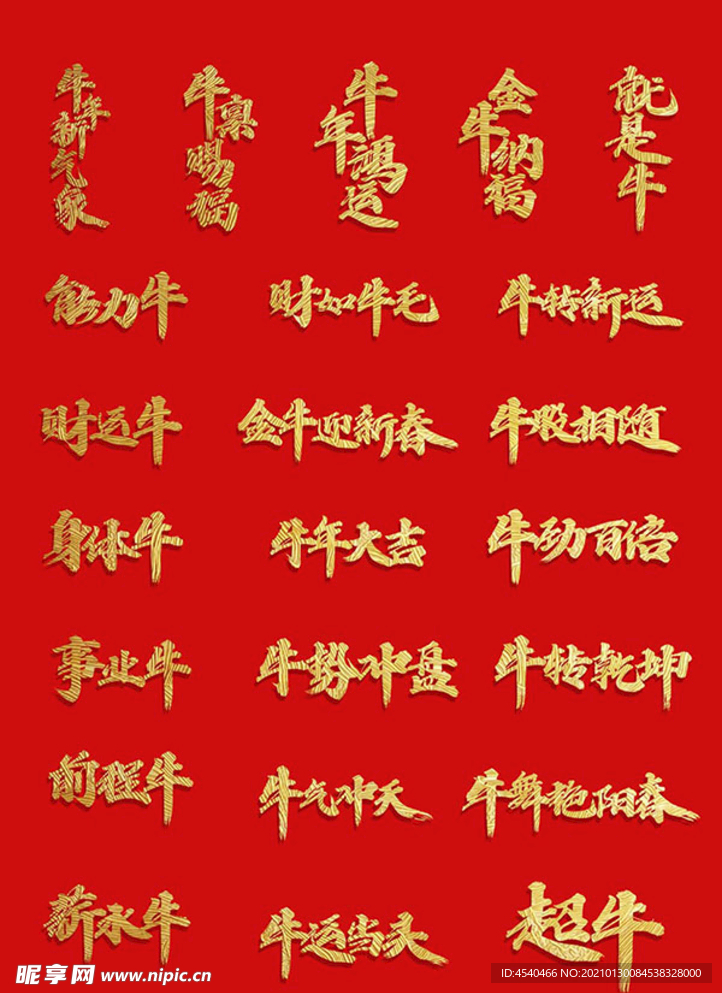 牛年新气象
牛气赐福
牛年鸿运
金牛纳福
就是牛
能力牛
财如牛毛
牛转新运
财运牛
金牛迎新春
牛股相随
身体牛
牛年大吉
牛劲百倍
事业牛
牛势冲盘
牛转乾坤
前程牛
牛气冲天
牛舞艳阳春
薪水牛
牛运当头
超牛
昵享网 www.nipic.cn
ID:4540466 NO:20210130084538328000